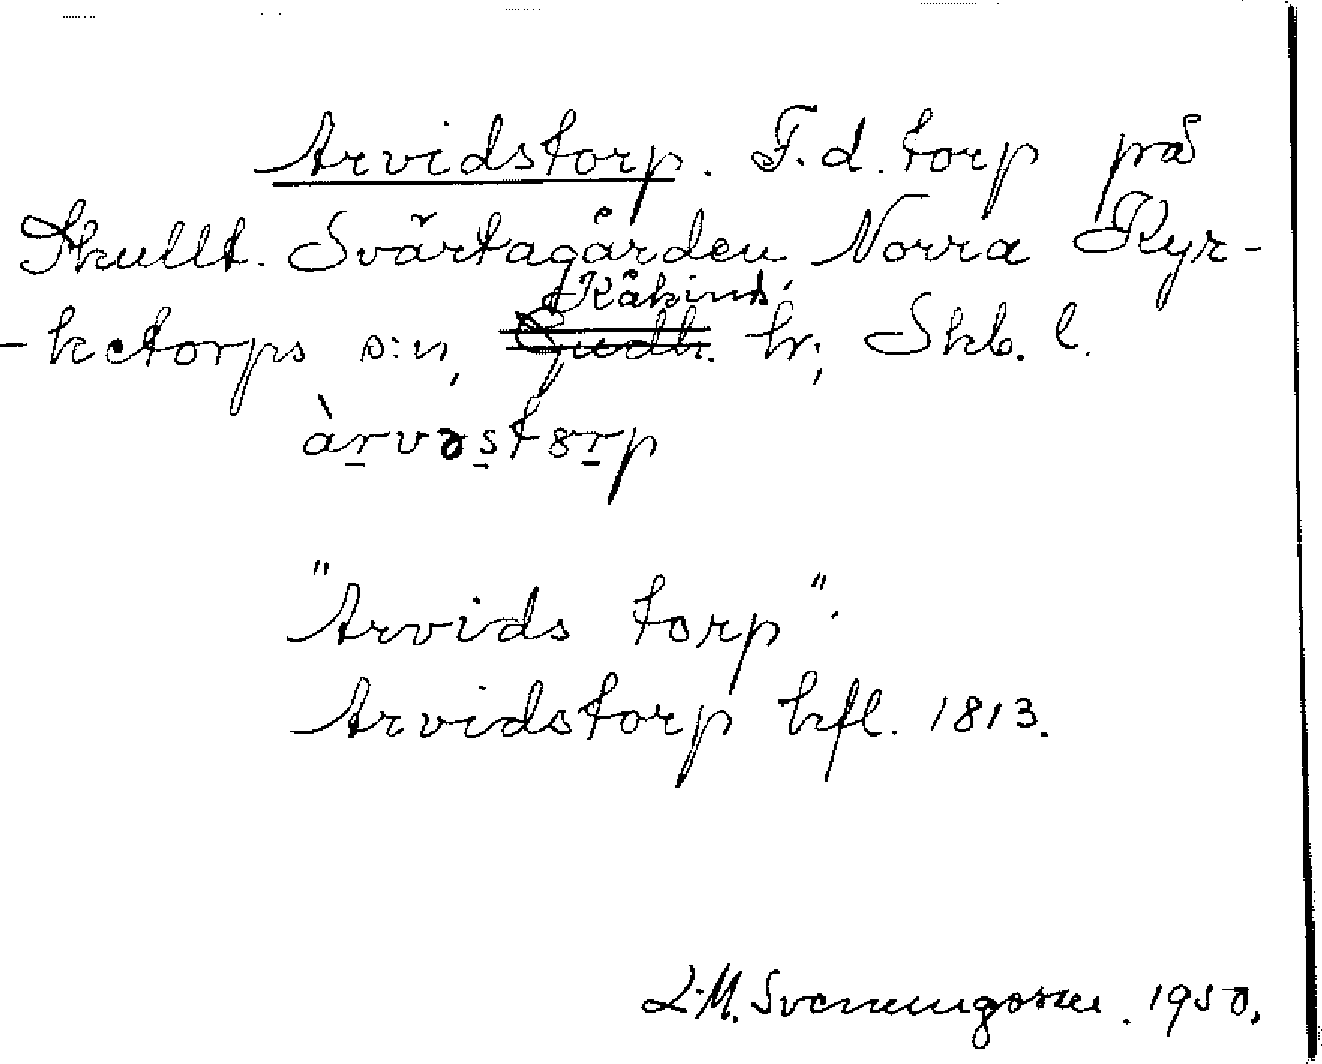 Arvidstorp. F.d. torp på
Skullt. Svärtagården. Norra Kyr-
Kåkinds
-ketorps s:n, Gudh. hr; Skb. l.
àrvəstorp
"Arvids torp".
Arvidstorp hfl. 1813.
L-M. Svenungsson. 1950.